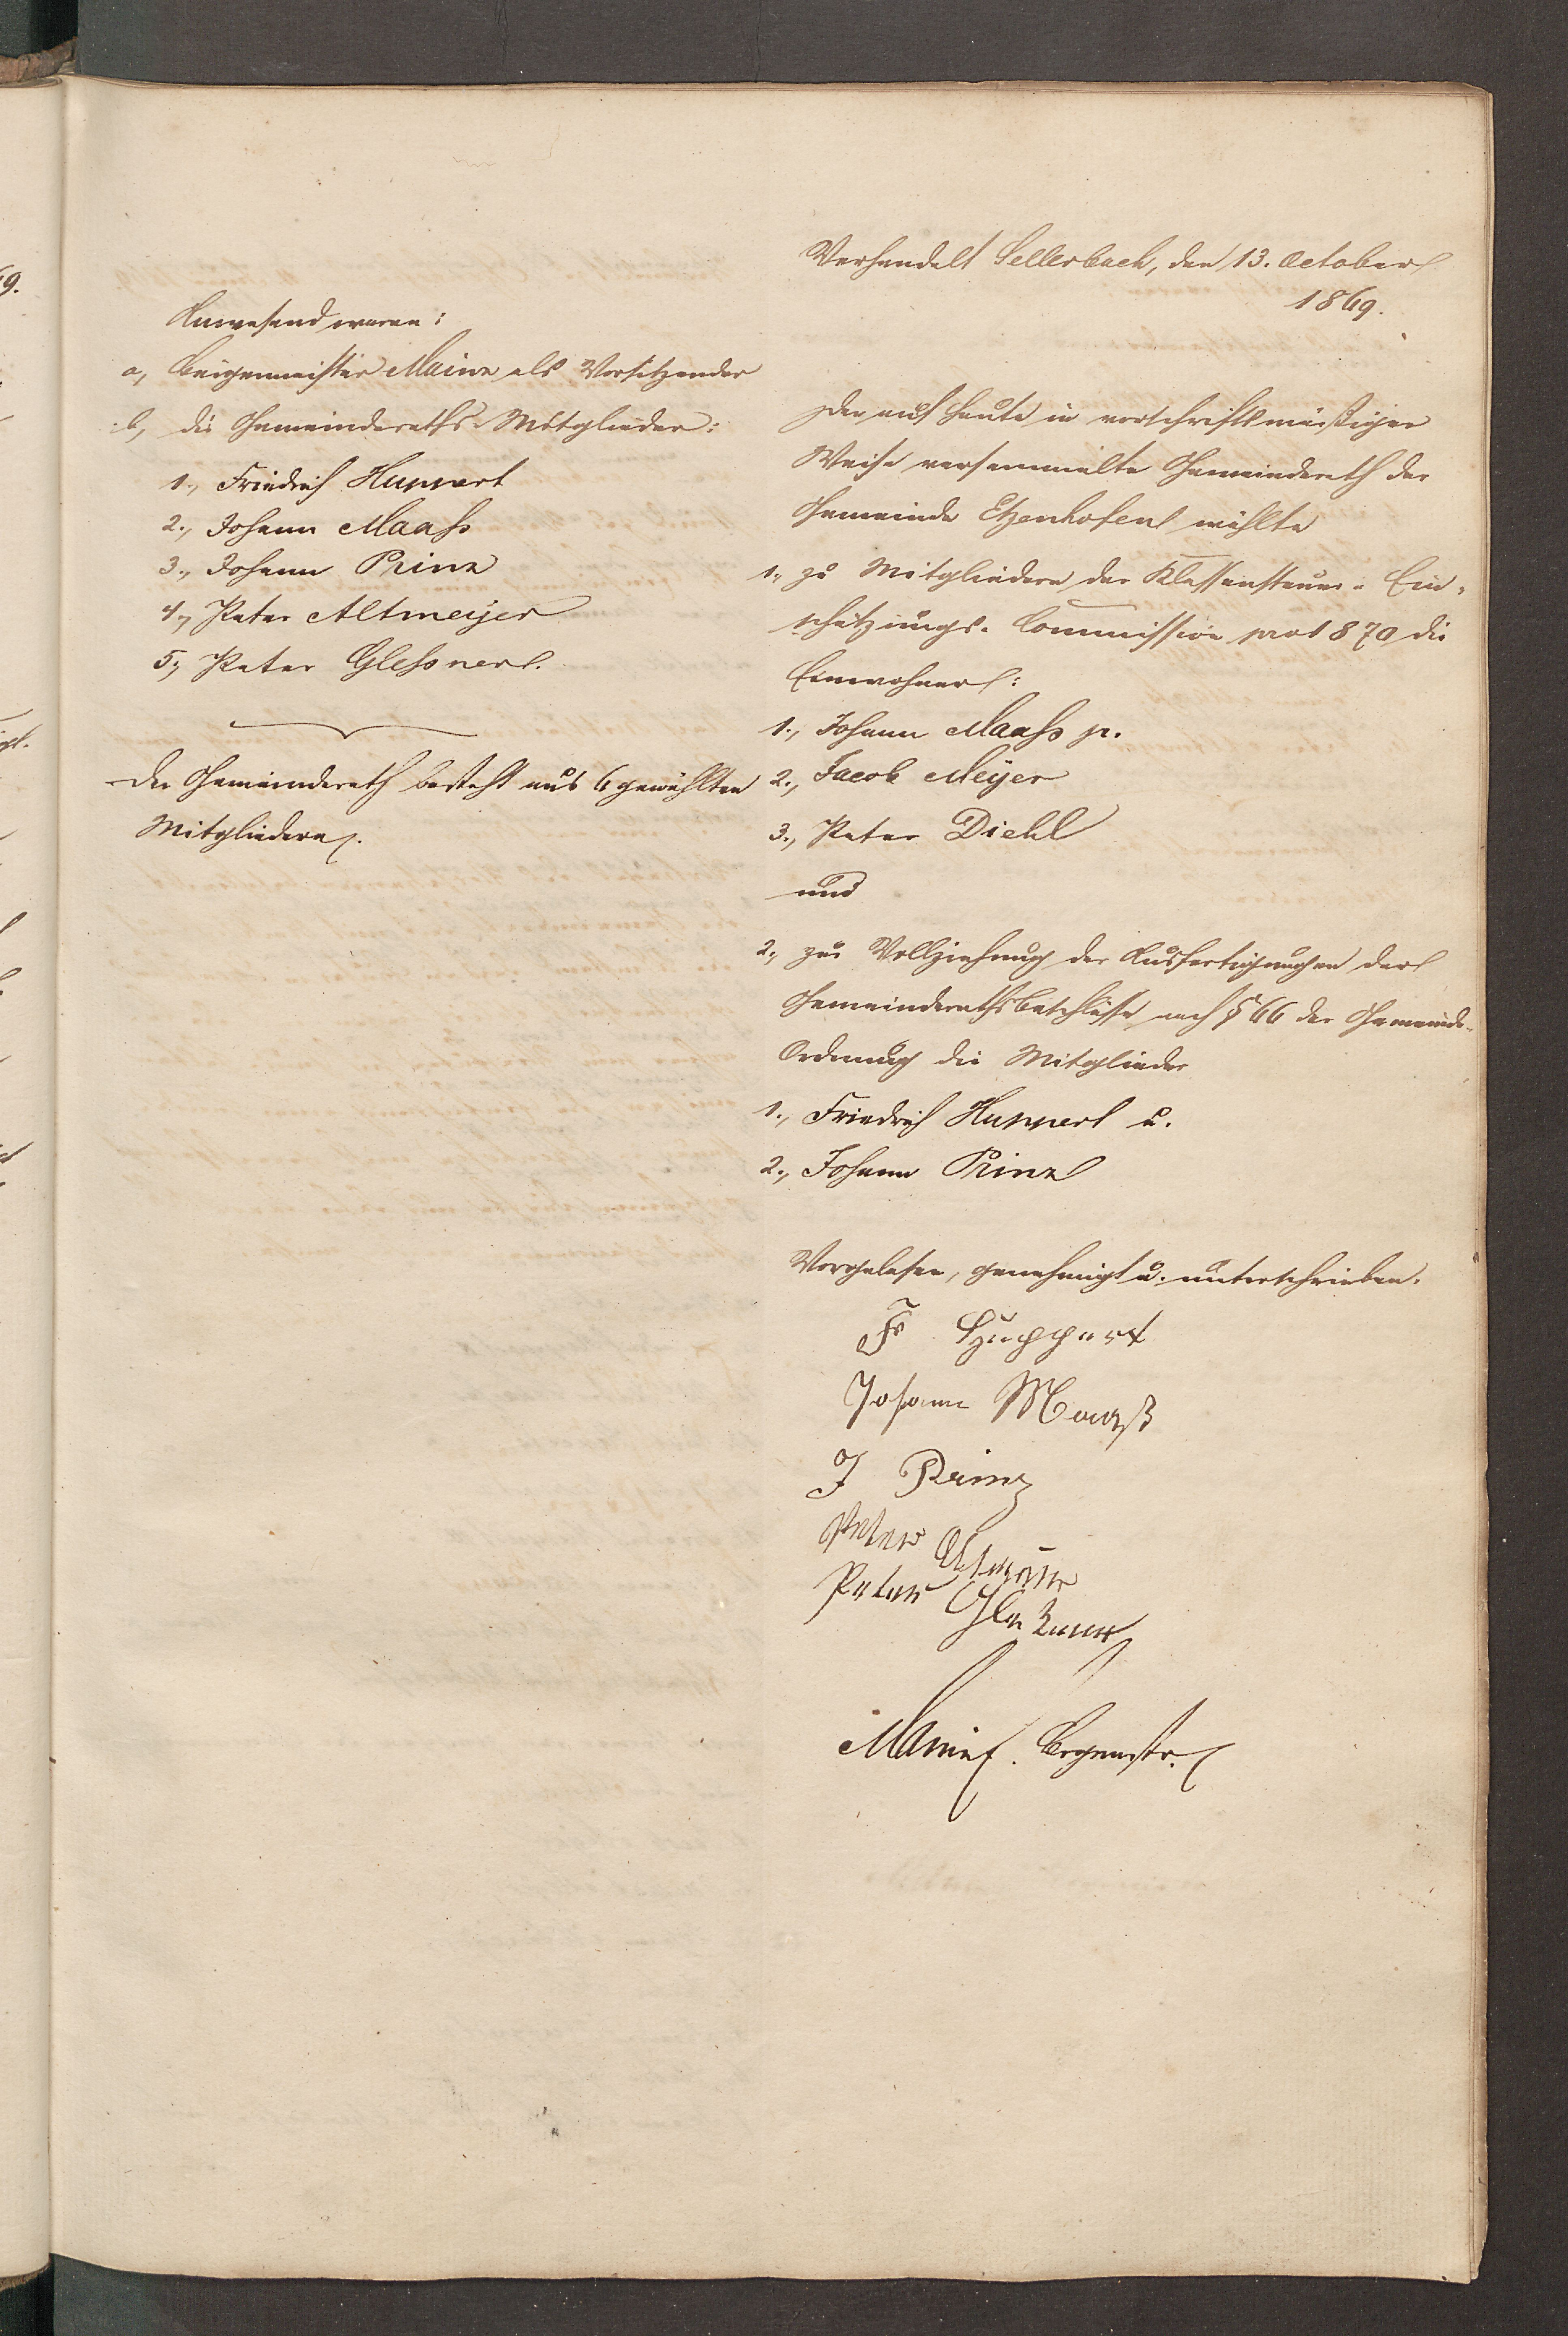 Anwesend waren:
a, Bürgermeister Mainz als Vorsitzender
b, die Gemeinderaths-Mitglieder:
1., Friedrich Huppert
2., Johann Maaß
3., Johann Prinz
4., Peter Altmeijer
5., Peter Gleßner.
Der Gemeinderath besteht aus 6 gewählten
Mitgliedern.
Verhandelt Sellerbach, den 13. October
1869.
Der auf heute in vorschriftsmäßiger
Weise versammelte Gemeinderath der
Gemeinde Etzenhofen wählte
1., zu Mitgliedern der Klassensteuer-Ein-
schätzungs-Commission pro 1870 die
Einwohner:
1., Johann Maaß p.
2., Jacob Meijer
3., Peter Diehl
und
2., zur Vollziehung der Ausfertigungen der
Gemeinderathsbeschlüsse nach § 66 der Gemeinde-
Ordnung die Mitglieder
1., Friedrich Huppert u.
2., Johann Prinz
Vorgelesen, genehmigt u. unterschrieben.
Fr Huppert
Johann Maaß
J Prinz
Peter
Peter Gleßner
Mainz. Brgrmstr.